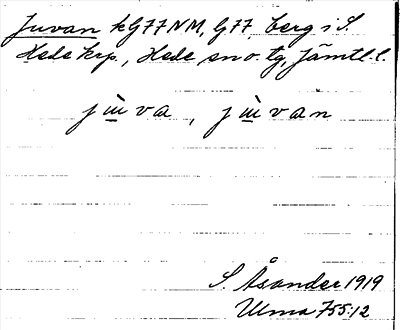 Juvan kG77NM, G77 berg i S.
Hede krp., Hede sn o. tg, Jämtl. l.
jùva, jùvan
S. Åsander 1919
Ulma 755:12